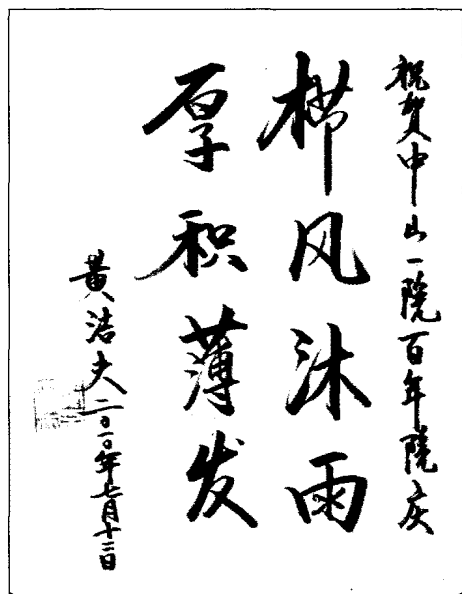 祝贺中山一院百年院庆
栉风沐雨
厚积薄发
黄洁夫二〇一〇年七月十二日